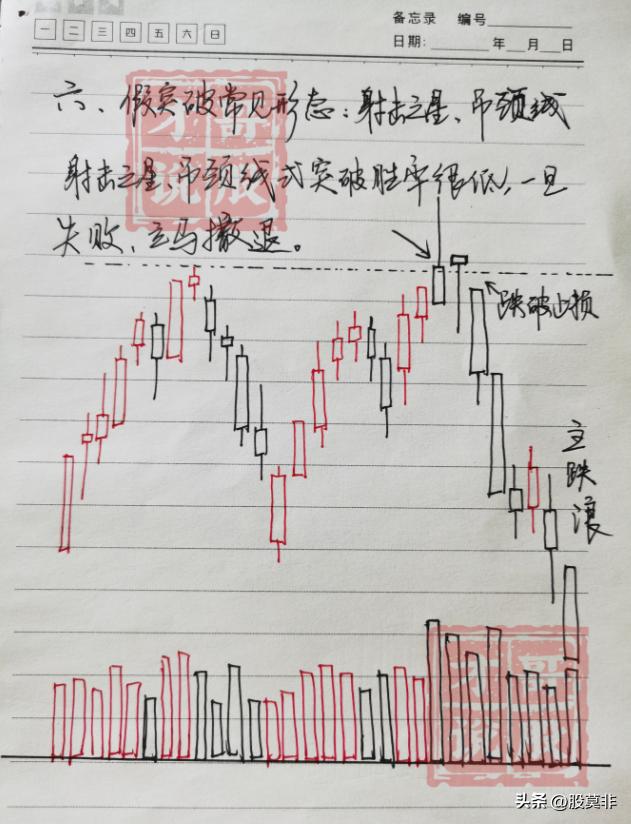 备忘录 编号
一 二 三 四 五 六 日
日期: 年 月 日
六、假突破常见形态:射击之星、吊颈线
射击之星、吊颈线式突破胜率很低,一旦
失败、立马撤退。
跌破止损
主跌浪
头条 @股莫非